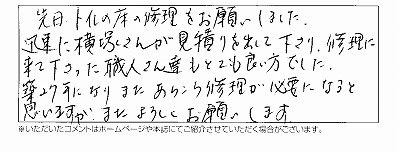 先日トイレの床の修理をお願いしました。
迅速に横塚さんが見積りを出して下さり、修理に
来て下さった職人さん達もとても良い方でした。
築27年になりまたあちこち修理が必要になると
思いますが、またよろしくお願いします
※いただいたコメントはホームページや本誌にてご紹介させていただく場合がございます。